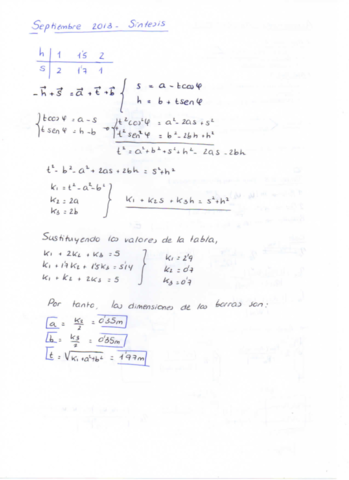 Septiembre 2013 - Síntesis
h 1 1'5 2
s 2 1'7 1
-h⃗ + s⃗ = a⃗ + t⃗ + b⃗ { s = a - t cos φ
h = b + t sen φ
{ t cos φ = a - s
t sen φ = h - b
t² cos² φ = a² - 2as + s²
t² sen² φ = b² - 2bh + h²
t² = a² + b² + s² + h² - 2as - 2bh
t² - b² - a² + 2as + 2bh = s² + h²
K₁ = t² - a² - b²
K₂ = 2a
K₃ = 2b
K₁ + K₂s + K₃h = s² + h²
Sustituyendo los valores de la tabla,
K₁ + 2K₂ + K₃ = 5
K₁ + 1'7K₂ + 1'5K₃ = 5'14
K₁ + K₂ + 2K₃ = 5
K₁ = 2'9
K₂ = 0'7
K₃ = 0'7
Por tanto, las dimensiones de las barras son:
a = K₂/2 = 0'35m
b = K₃/2 = 0'35m
t = √K₁+a²+b² = 1'77m